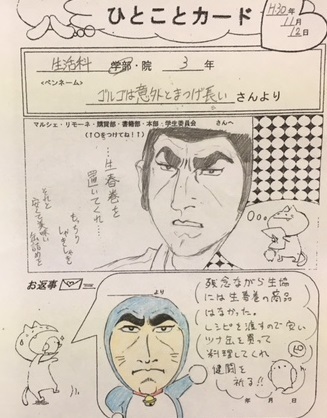 ひとことカード
H30年
11月
12日
生活科 学部・院 3 年
<ペンネーム>
ゴルゴは意外とまつげ長い さんより
マルシェ・リモーネ・購買部・書籍部・本部・学生委員会 さんへ
(↑○をつけてね!)
…生春巻を
置いてくれ…
もっちり
しゃきしゃきを
それと
安くて美味い
缶詰めを
お返事
より
残念ながら生協
には生春巻の商品
はなかった。
レシピを渡すので安い
ツナ缶を買って
料理してくれ
健闘を
祈る!!
年 月 日